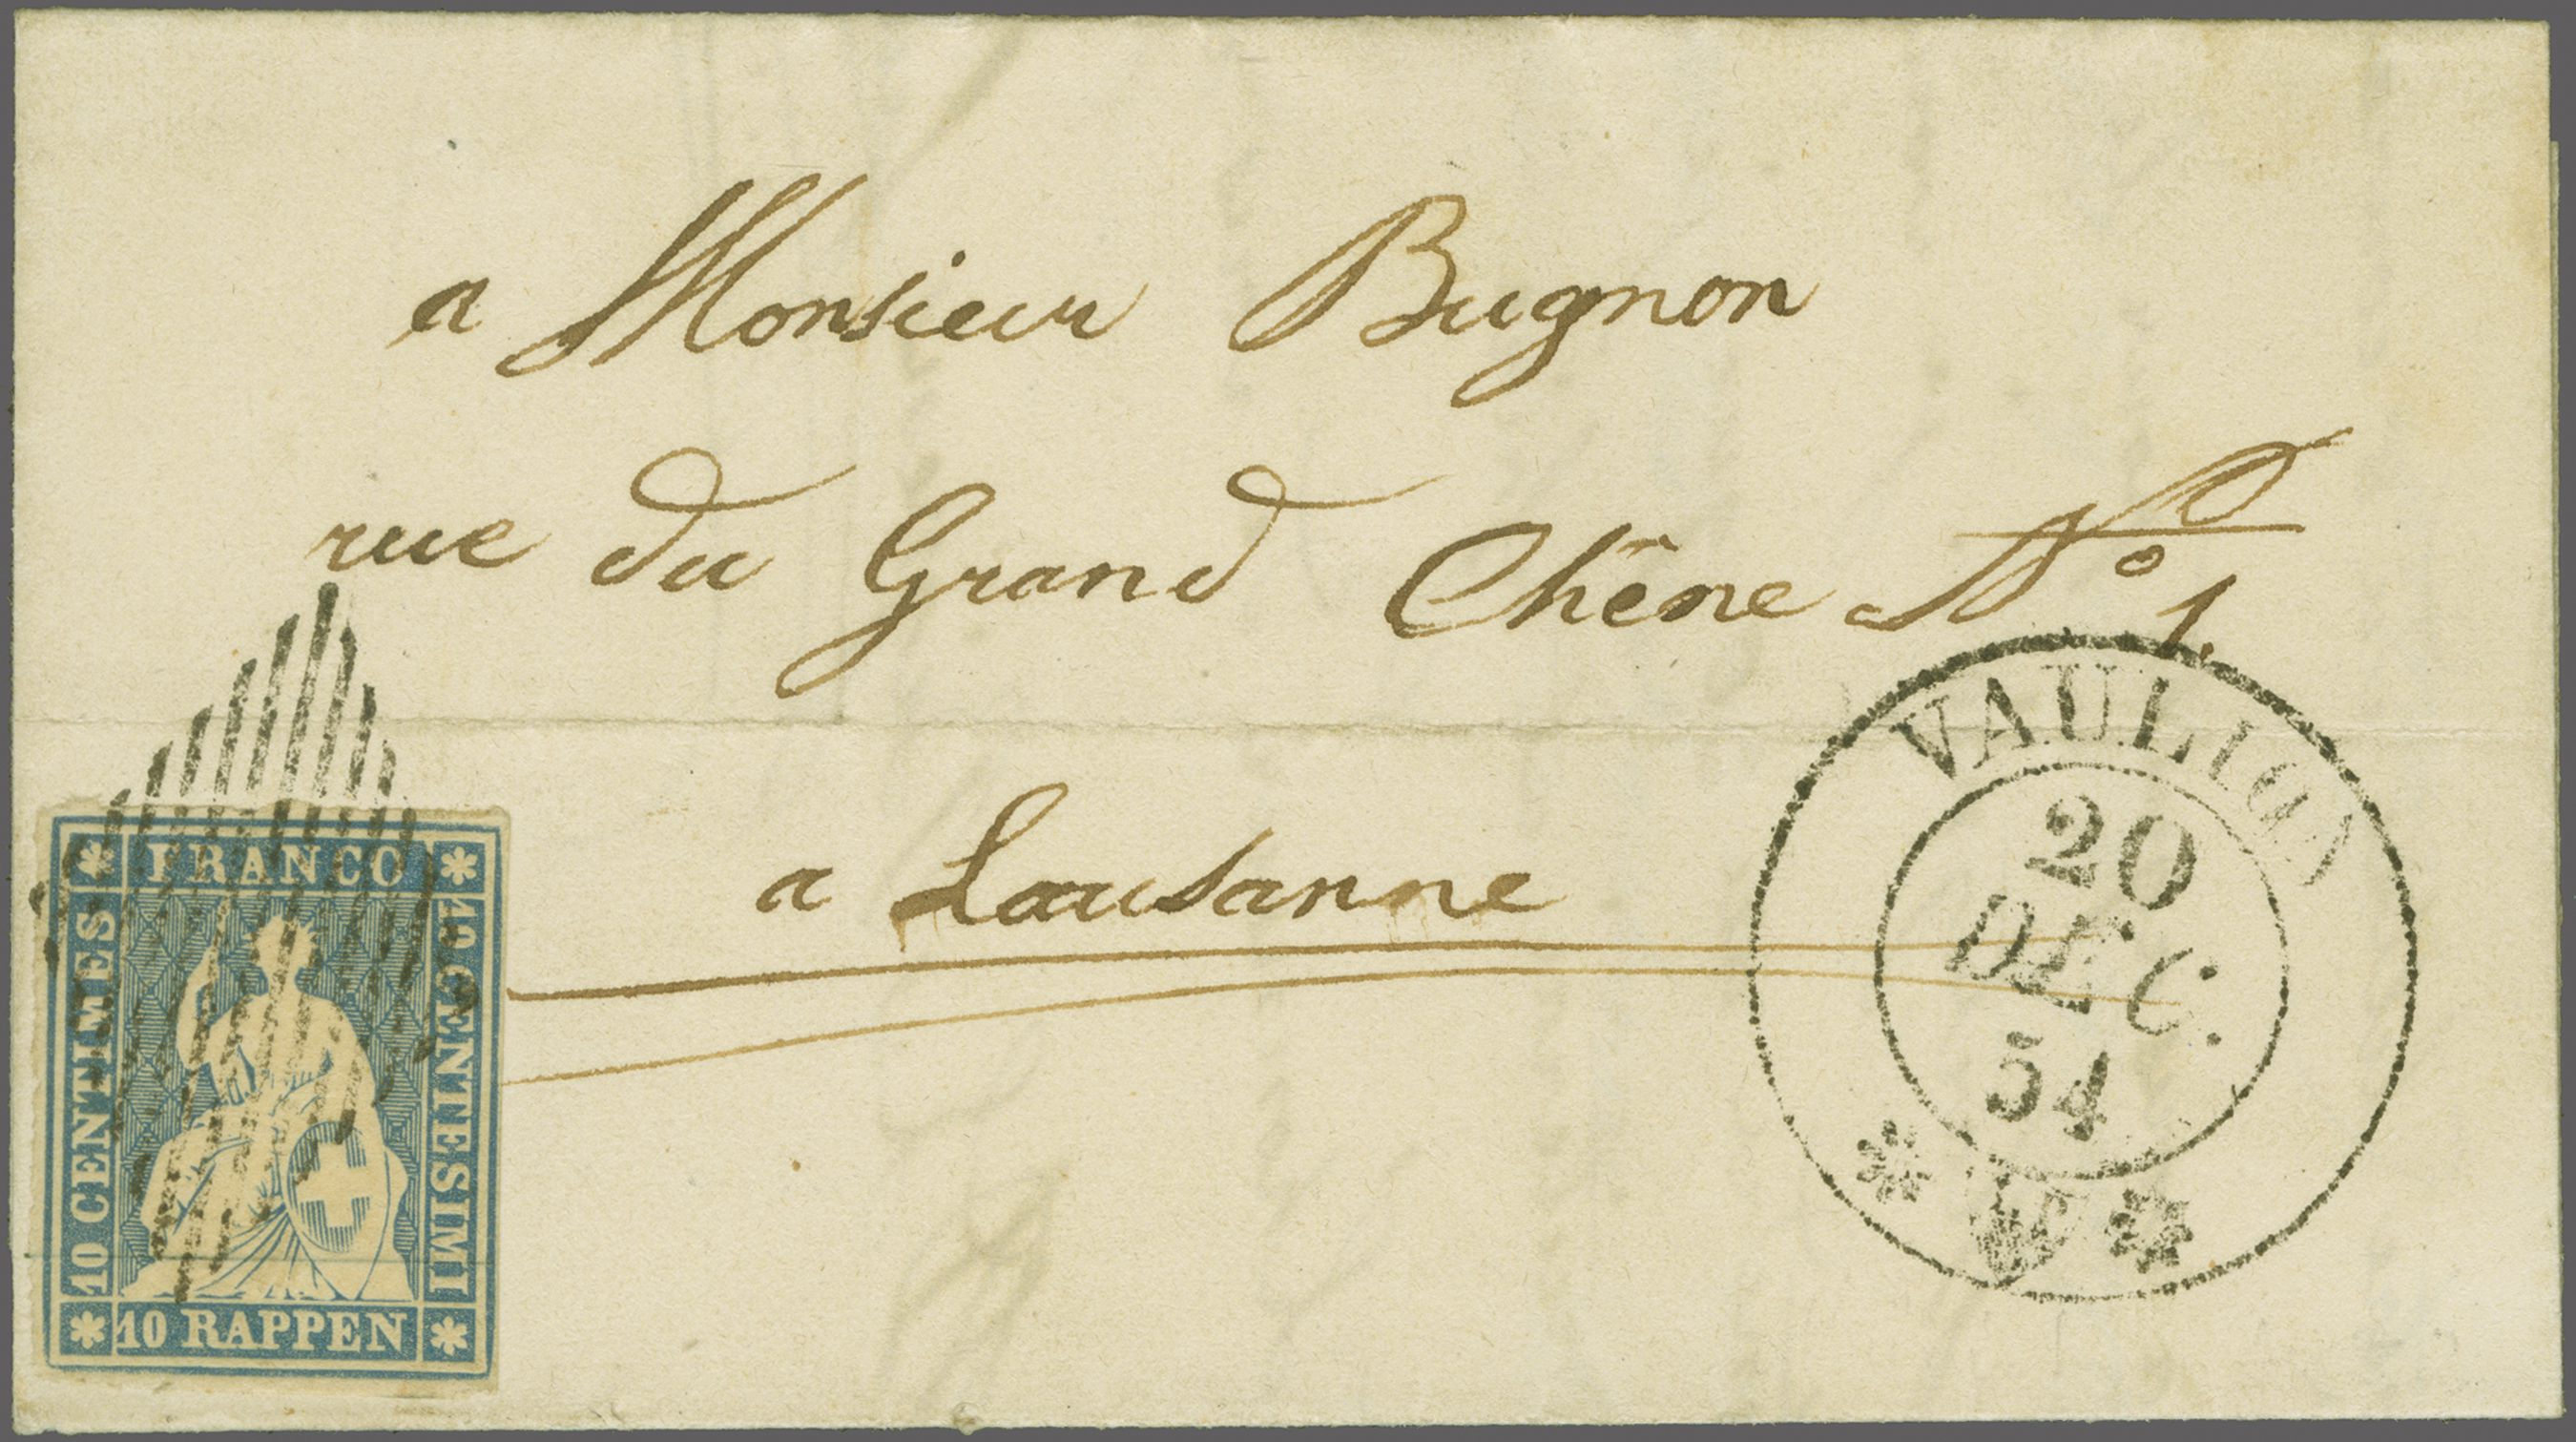 a Monsieur Bugnon
rue du Grand Chêne Nº 1.
a Lausanne
FRANCO
10 CENTIMES
10 CENTESIMI
10 RAPPEN
VAULION
20
DEC.
54